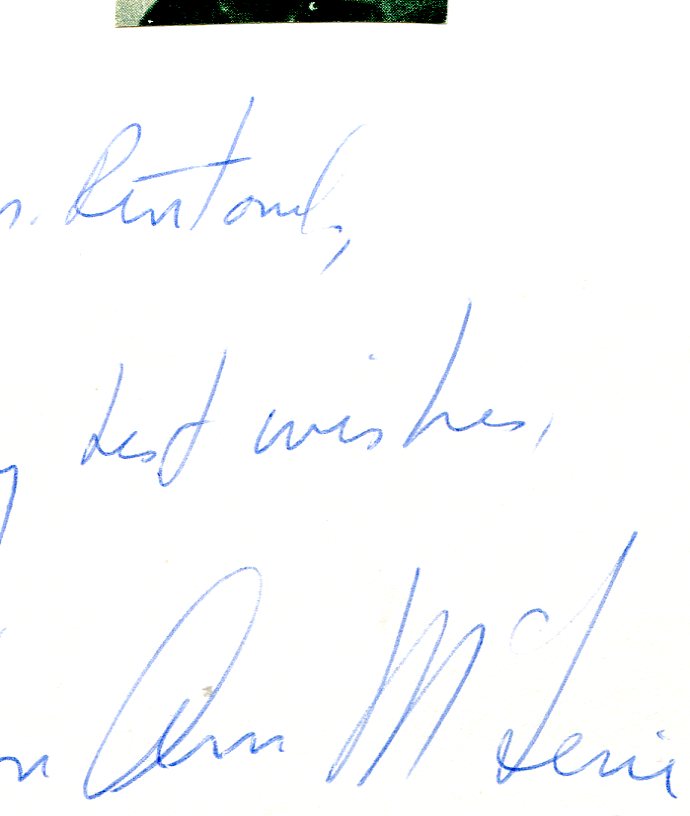 s. Rintoul,
y best wishes,
n Ann McLerie